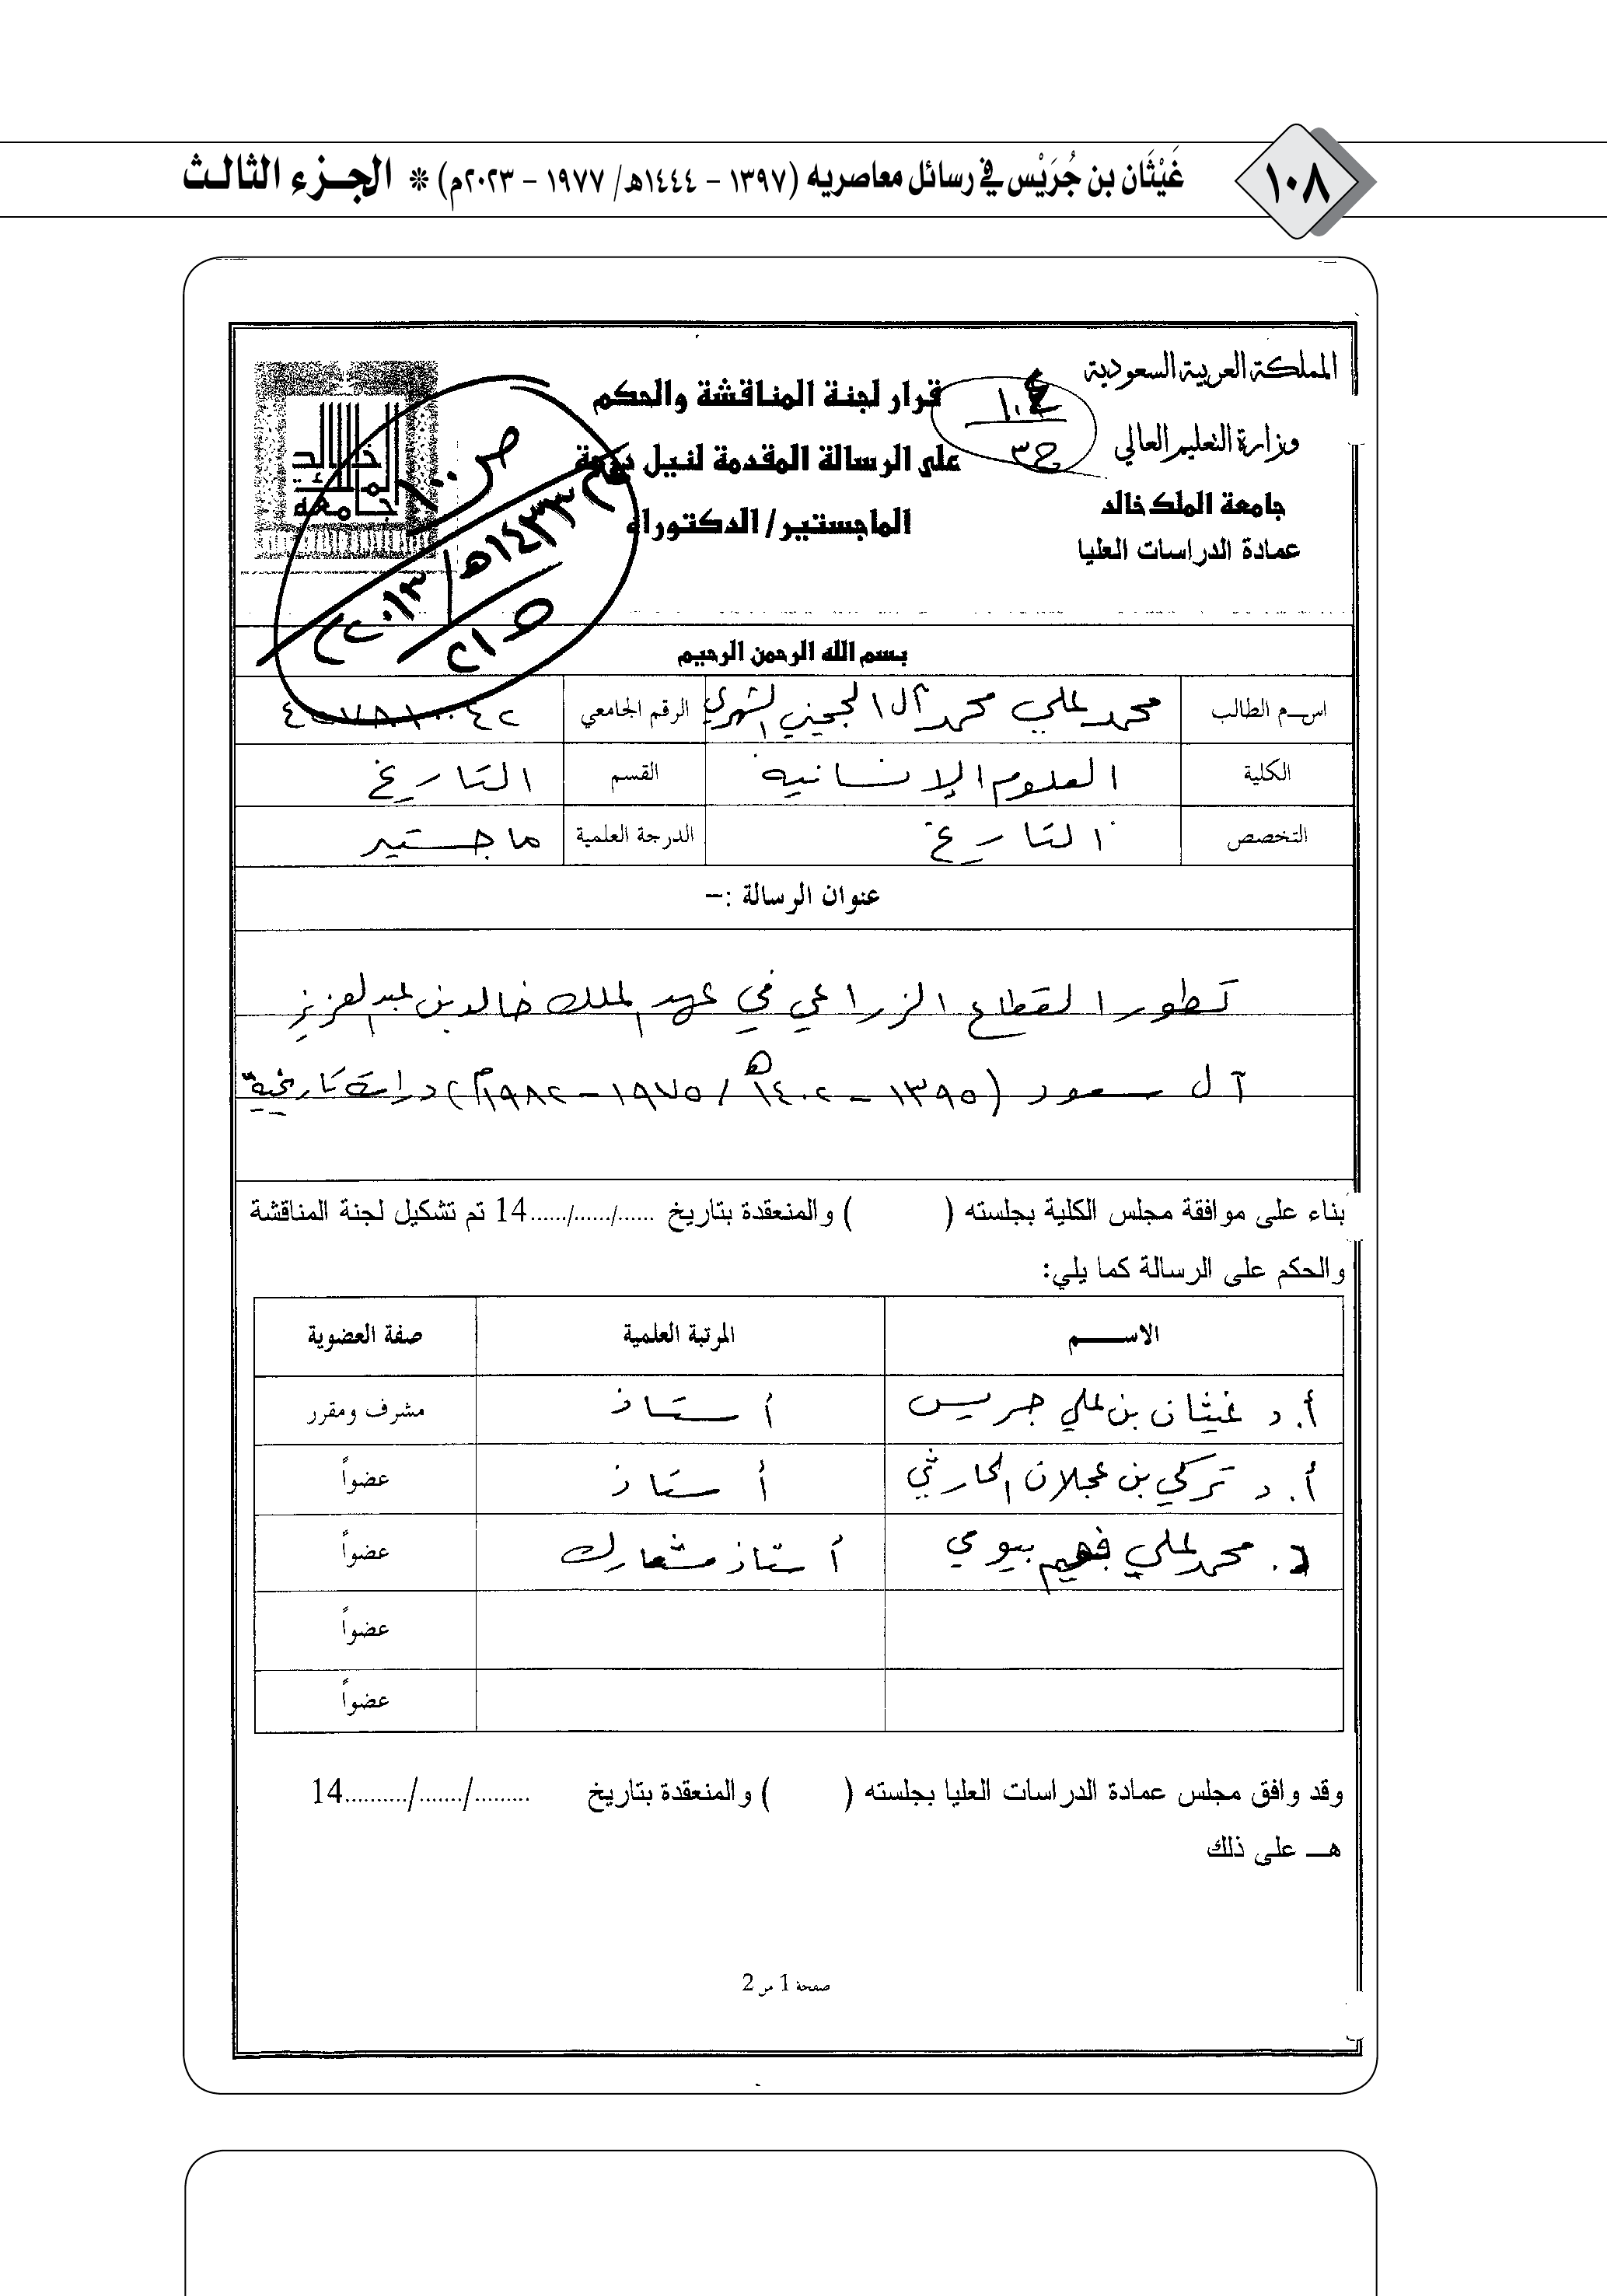 ١٠٨
غَيْثَان بن جُرَيْس في رسائل معاصريه (١٣٩٧ – ١٤٤٤هـ/ ١٩٧٧ – ٢٠٢٣م) * الجـزء الثالـث
المملكة العربية السعودية
وزارة التعليم العالي
جامعة الملك خالد
عمادة الدراسات العليا
١٠٤
ج٣
قرار لجنة المناقشة والحكم
على الرسالة المقدمة لنيل درجة
الماجستير/ الدكتوراه
جامعة الملك خالد
ص ١٠٠
عام ١٤٣٣هـ/ ٢٠١٣م
بسم الله الرحمن الرحيم
اســم الطالب محمد علي محمد آل الجحيني الشهري الرقم الجامعي
الكلية العلوم الإنسانية القسم التاريخ
التخصص التاريخ الدرجة العلمية ماجستير
عنوان الرسالة :–
تطور القطاع الزراعي في عهد الملك خالد بن عبد العزيز
آل سعود (١٣٩٥ – ١٤٠٢هـ / ١٩٧٥ – ١٩٨٢م) دراسة تاريخية
بناء على موافقة مجلس الكلية بجلسته ( ) والمنعقدة بتاريخ ....../....../......14 تم تشكيل لجنة المناقشة
والحكم على الرسالة كما يلي:
الاســــم المرتبة العلمية صفة العضوية
أ. د غيثان بن علي جريس أستاذ مشرف ومقرر
أ. د تركي بن عجلان الحارثي أستاذ عضواً
د. محمد علي فهيم بيومي أستاذ مشارك عضواً
عضواً
عضواً
وقد وافق مجلس عمادة الدراسات العليا بجلسته ( ) والمنعقدة بتاريخ ........./......./..........14
هـــ على ذلك
صفحة 1 من 2